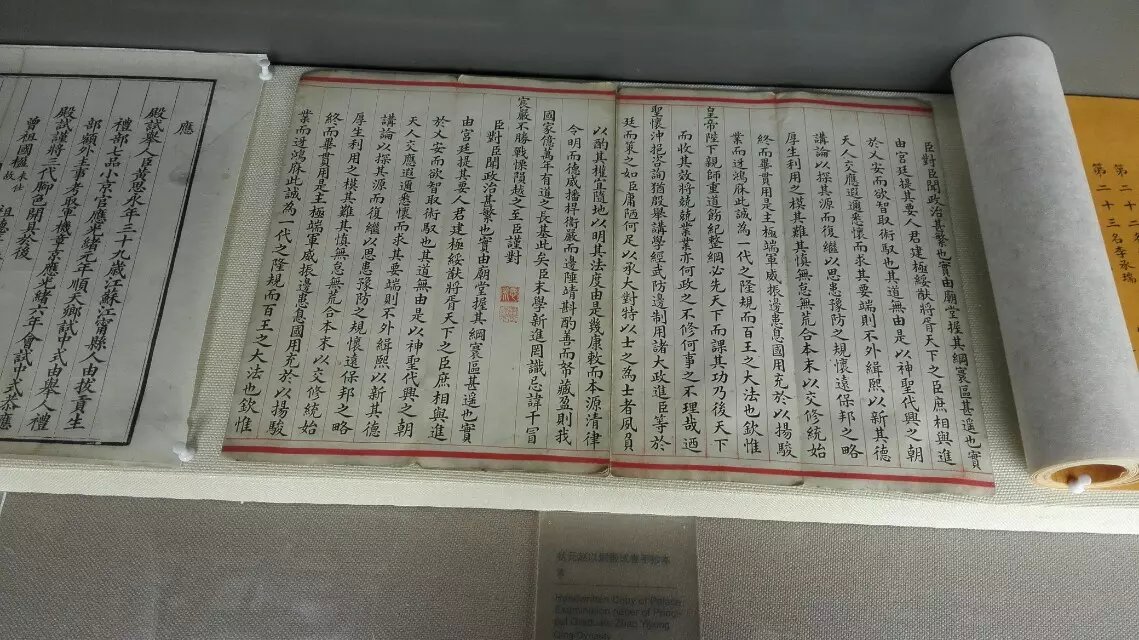 第二十二名
第二十三名李承瑞
臣對臣聞政治甚繁也實由廟堂握其綱寰區甚遥也實
由宮廷提其要人君建極綏猷將胥天下之臣庶相與進
於乂安而欲智取術馭也其道無由是以神聖代興之朝
天人交應遐邇悉懷而求其要端則不外緝熙以新其德
講論以探其源而復繼以思患豫防之規懷遠保邦之略
厚生利用之模其難其慎無怠無荒合本末以交修統始
終而畢貫用是主極端軍威振邊患息國用充於以揚駿
業而迓鴻庥此誠為一代之隆規而百王之大法也欽惟
皇帝陛下親師重道飭紀整綱必先天下而課其功乃後天下
而收其效將兢兢業業亦何政之不修何事之不理哉迺
聖懷沖挹咨詢猶殷舉講學經武防邊制用諸大政進臣等於
廷而策之如臣庸陋何足以承大對特以士之為士者夙負
以酌其權宜隨地以明其法度由是幾康敕而本源清律
令明而德威播桿衛嚴而邊陲靖斟酌善而帑藏盈則我
國家億萬年有道之長基此矣臣末學新進罔識忌諱干冒
宸嚴不勝戰慄隕越之至臣謹對
臣對臣聞政治甚繁也實由廟堂握其綱寰區甚遥也實
由宮廷提其要人君建極綏猷將胥天下之臣庶相與進
於乂安而欲智取術馭也其道無由是以神聖代興之朝
天人交應遐邇悉懷而求其要端則不外緝熙以新其德
講論以探其源而復繼以思患豫防之規懷遠保邦之略
厚生利用之模其難其慎無怠無荒合本末以交修統始
終而畢貫用是主極端軍威振邊患息國用充於以揚駿
業而迓鴻庥此誠為一代之隆規而百王之大法也欽惟
應
殿試舉人臣黃思永年三十九歲江蘇江甯縣人由拔貢生
禮部七品小京官應光緒元年順天鄉試中式由舉人禮
部額外主事考取軍機章京應光緒六年會試中式恭應
殿試謹將三代腳色開具於後
曾祖國楹未仕故
Handwritten Copy of Palace
Examination paper of Principal Graduate Zhao Yijiong
Qing Dynasty